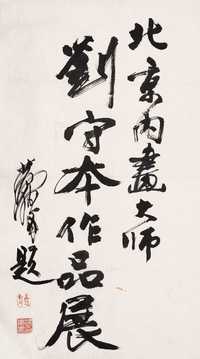 北京内畫大师
劉守本作品展
題